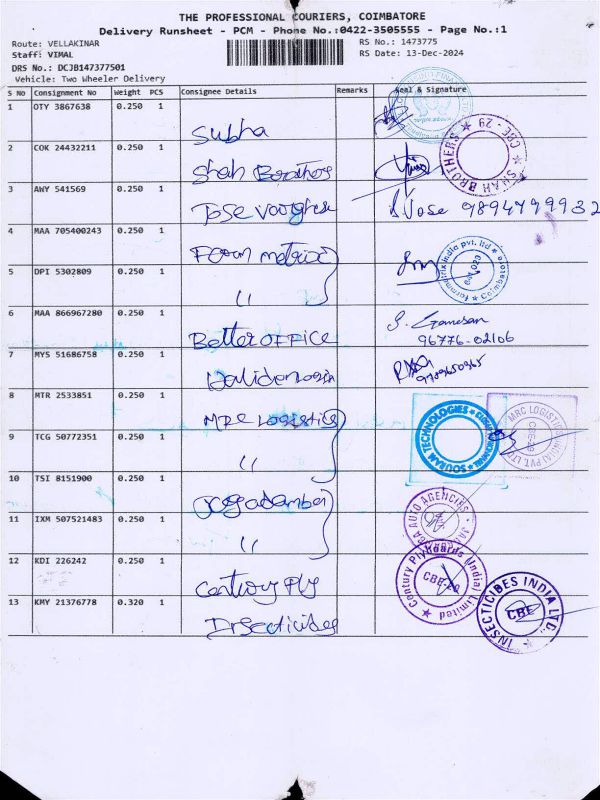 THE PROFESSIONAL COURIERS, COIMBATORE
Delivery Runsheet - PCM - Phone No.:0422-3505555 - Page No.:1
Route: VELLAKINAR
RS No.: 1473775
Staff: VIMAL
RS Date: 13-Dec-2024
DRS No.: DCJB147377501
Vehicle: Two Wheeler Delivery
S No Consignment No Weight PCS Consignee Details Remarks Seal & Signature
1 OTY 3867638 0.250 1
Subha
2 COK 24432211 0.250 1
Shah Brothers
SHAH BROTHERS ★ CBE - 29 ★
3 ANY 541569 0.250 1
Jose
Jose 9894799932
4 MAA 705400243 0.250 1
Form metrix
formmetrix india pvt. ltd ★ Coimbatore ★
5 DPI 5302809 0.250 1
"
6 MAA 866967280 0.250 1
Better OFFICE
S. Ganesan
96776-02106
7 MYS 51686758 0.250 1
8 MTR 2533851 0.250 1
MRC Logistics
SOURAM TECHNOLOGIES
MRC LOGISTICS (INDIA) PVT. LTD
CBE-29
9 TCG 50772351 0.250 1
"
10 TSI 8151900 0.250 1
AUTO AGENCIES
11 IXM 507521483 0.250 1
"
12 KDI 226242 0.250 1
Century Ply
Century Plyboards (India) Limited ★
CBE-29
13 KMY 21376778 0.320 1
Insecticides
INSECTICIDES INDIA LTD. ★
CBE